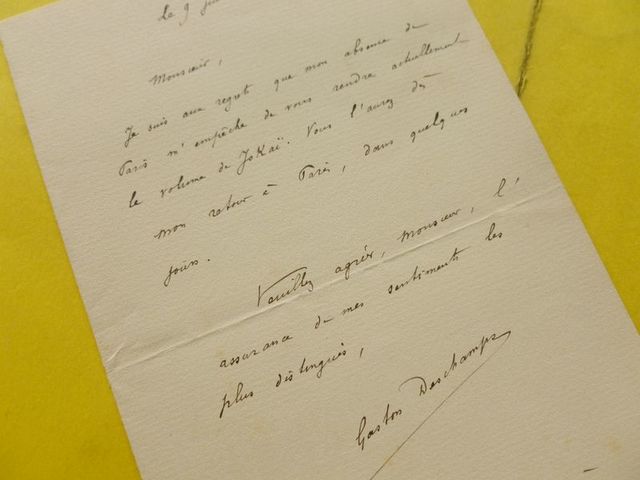 le 9
Monsieur,
Je suis aux regrets que mon absence de
Paris m'empêche de vous rendre actuellement
le volume de Jokaï. Vous l'aurez dès
mon retour à Paris, dans quelques
jours.
Veuillez agréer, Monsieur, l'
assurance de mes sentiments les
plus distingués,
Gaston Deschamps